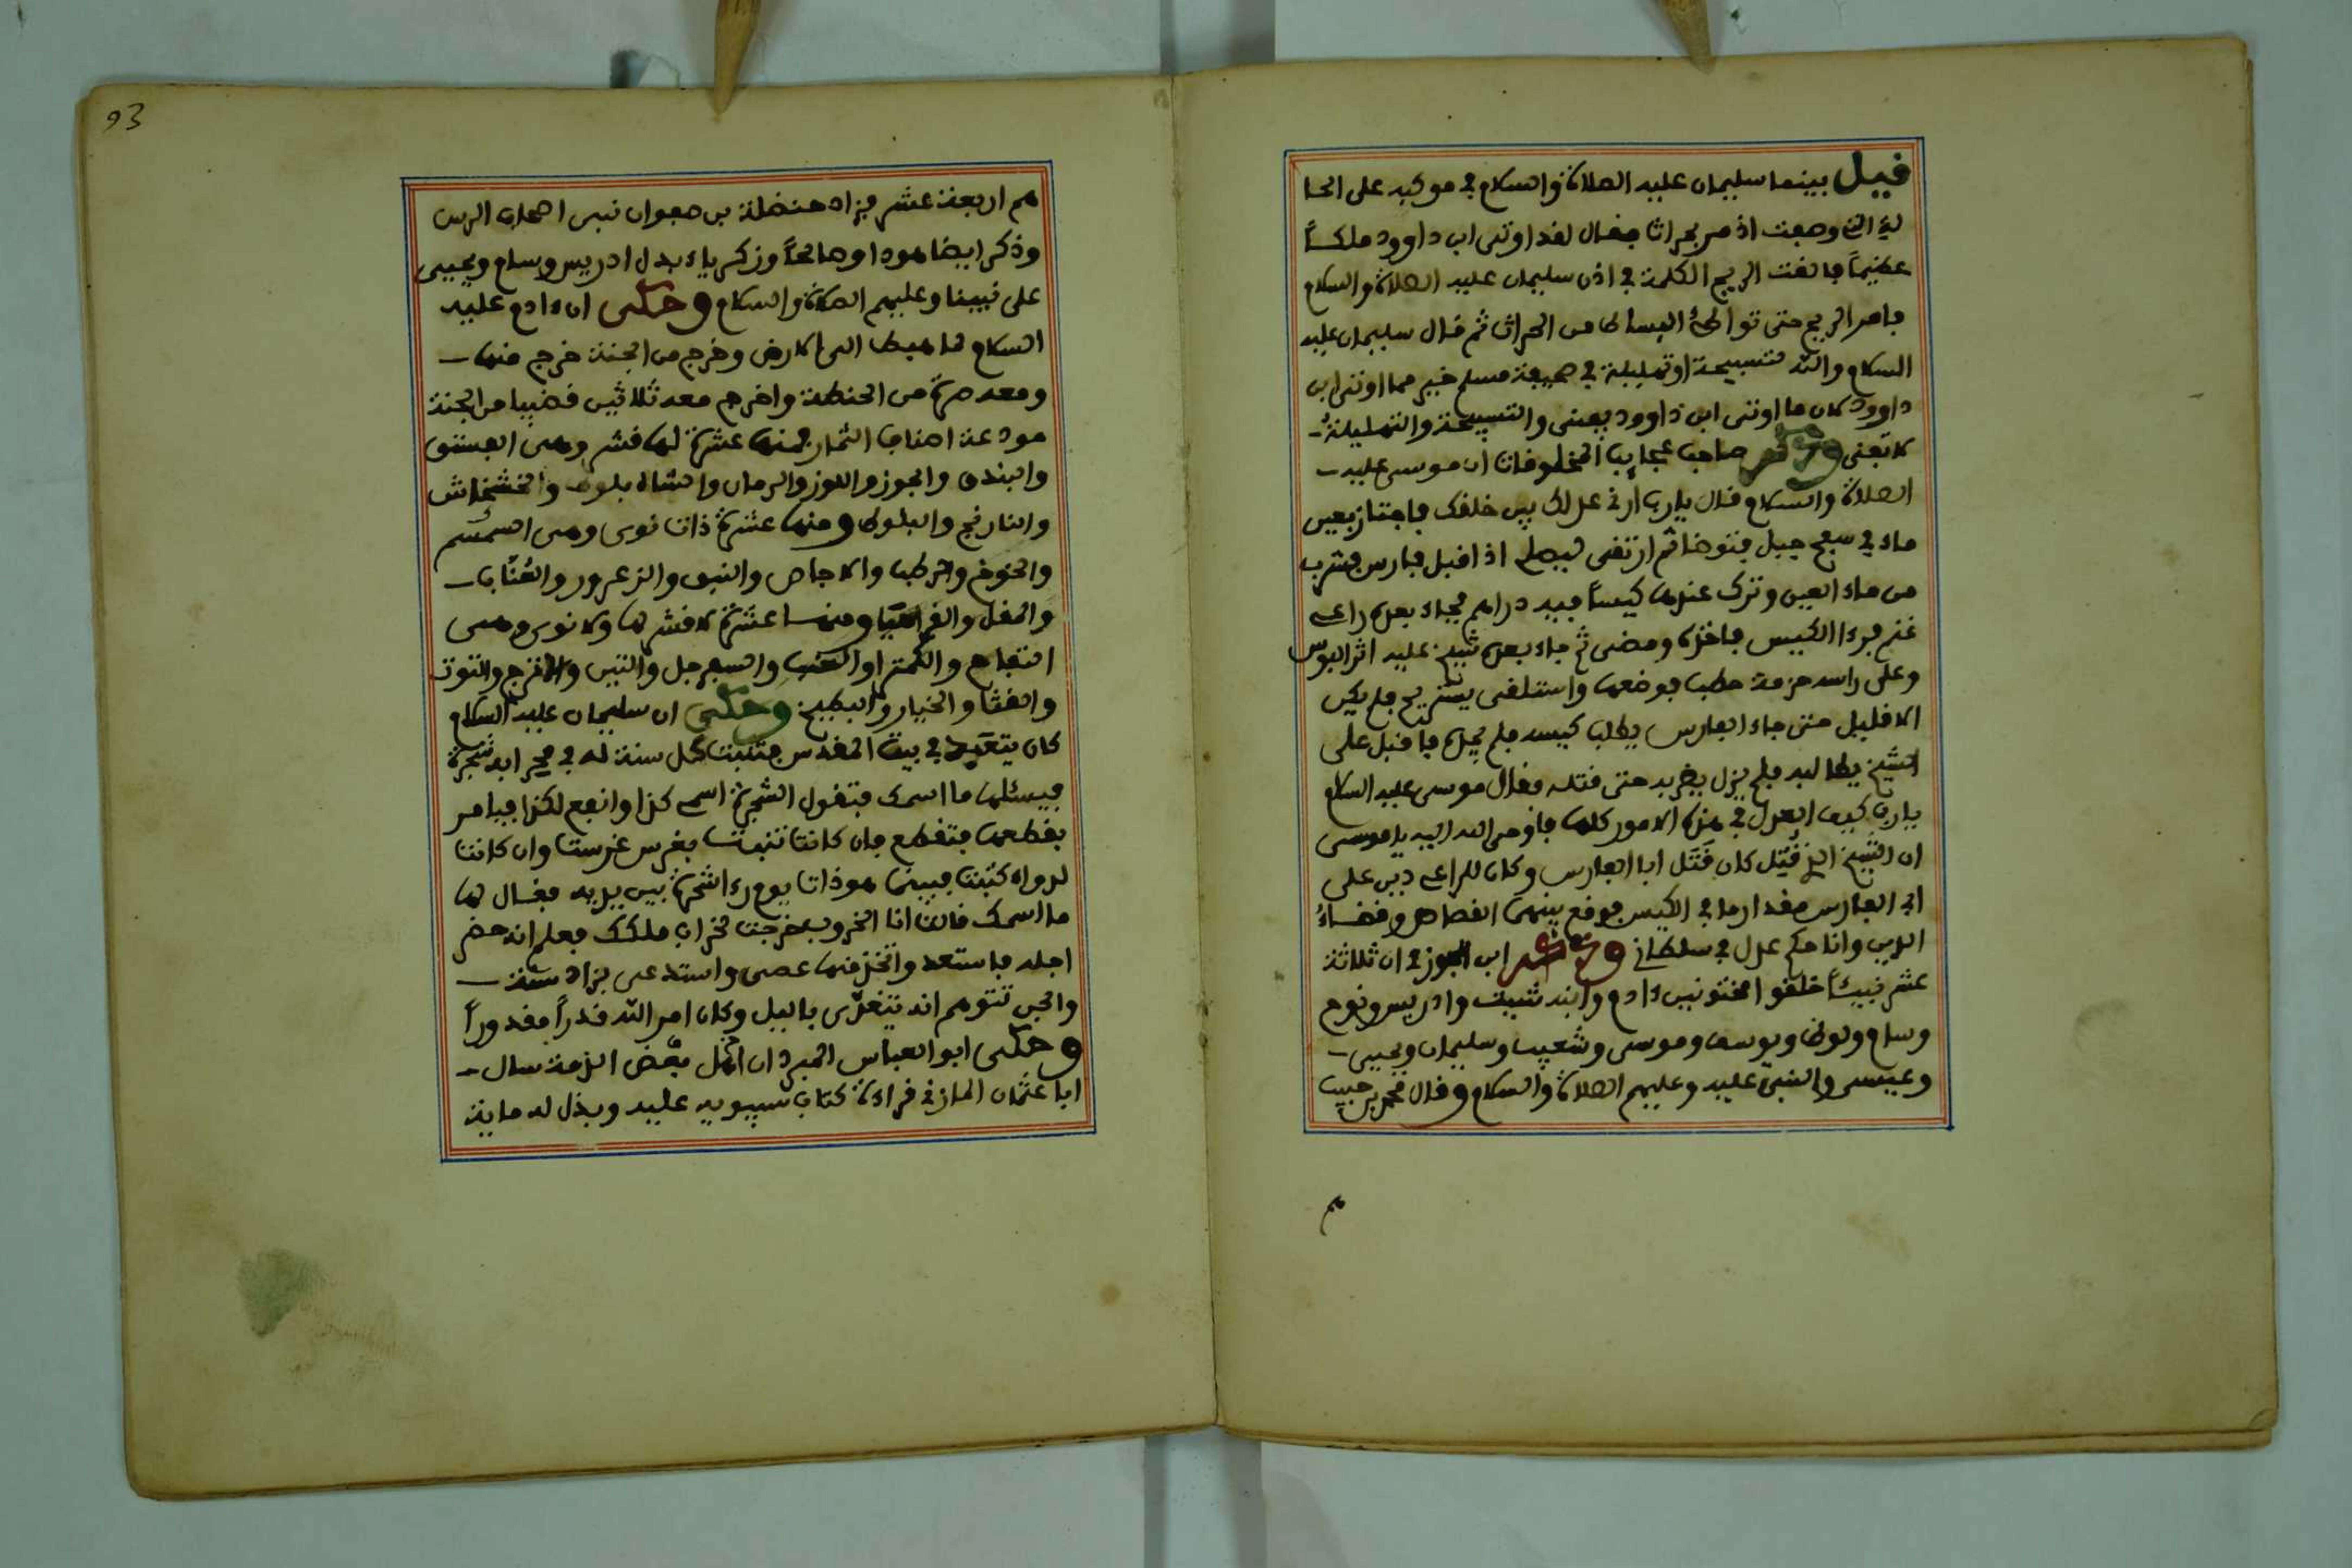 قيل بينما سليمان عليه الصلاة والسلام في موكبه على الحا
لة التي وصفت اذ مر بحراث فقال لقد اوتي ابن داوود ملكاً
عظيماً فالقت الريح الكلمة في اذن سليمان عليه الصلاة والسلام
فامر الريح حتى البساط من الحراث ثم قال سليمان عليه
السلام والله لتسبيحة او تهليلة في صحيفة مسلم خير مما اوتي ابن
داوود لان ما اوتي ابن داوود يفنى والتسبيحة والتهليلة
لا تفنى وذكر صاحب عجايب المخلوقات ان موسى عليه
الصلاة والسلام قال يا رب ارني عدلك بين خلقك فاجتاز بعين
ماء في سفح جبل فتوضا ثم ارتقى ليصلي اذ اقبل فارس فشرب
من ماء العين وترك عندها كيساً فيه دراهم فجاء بعده راعي
غنم فرءا الكيس فاخذه ومضى ثم جاء بعده شيخ عليه اثر البوس
وعلى راسه حزمة حطب فوضعها واستلقى يستريح فلم يكن
الا قليل حتى جاء الفارس يطلب كيسه فلم يجده فاقبل على
الشيخ يطالبه فلم يزل يضربه حتى قتله فقال موسى عليه السلام
يا رب كيف العدل في هذه الامور كلها فاوحى الله اليه يا موسى
ان الشيخ الذي قُتِل كان قَتَل ابا الفارس وكان للراعي دين على
اب الفارس مقدار ما في الكيس فوقع بينهما القصاص وقضاءُ
الدين وانا حكم عدل في سلطاني وذكر ابن الجوزي ان ثلاثة
عشر نبيئاً خلقوا مختونين ءادم وابنه شيث وادريس ونوح
وسام ولوط ويوسف وموسى وشعيب وسليمان ويحيى
وعيسى والنبي عليه وعليهم الصلاة والسلام وقال محمد بن حبيب
هم
93
هم اربعة عشر فزاد حنضلة بن صفوان نبي اصحاب الرس
وذكر ايضا هودا وصالحاً وزكرياء بدل ادريس وسام ويحيى
على نبينا وعليهم الصلاة والسلام وحكى ان ءادم عليه
السلام لما هبط الى الارض وخرج من الجنة خرج منها
ومعه صرة من الحنطة واخرج معه ثلاثين قضيبا من الجنة
مودعة اصناف الثمار فمنها عشرة لها قشر وهي الفستق
والبندق والجوز واللوز والرمان والشاه بلوط والخشخاش
والنارنج والبلوط ومنها عشرة ذات نوى وهي
والخوخ والرطب والاجاص والنبق والزعرور والعُنّاب
والمقل ومنها عشرة لا قشر لها ولا نوى وهي
التفاح والكمثرا والعنب والسفرجل والتين والاترج والتوت
والقثا والخيار والبطيخ وحكى ان سليمان عليه السلام
كان يتعبد في بيت المقدس فتنبت كل سنة له في محرابه شجرة
فيسئلها ما اسمك فتقول الشجرة اسمي كذا وانفع لكذا فيامر
بقطعها فتقطع فان كانت تنبت بغرس غرست وان كانت
لدواء كتبت فبينما هو ذات يوم رءا شجرة بين يديه فقال لها
ما اسمك قالت انا الخروب خرجت لخراب ملكك فعلم انه حضر
اجله فاستعد واتخذ منها عصى واستدعى بزاد سنة
والجن تتوهم انه يتغذى بالليل وكان امر الله قدراً مقدوراً
وحكى ابو العباس المبرد ان بعض اهل الذمة سال
ابا عثمان المازني قراءة كتاب سيبويه عليه وبذل له ماية